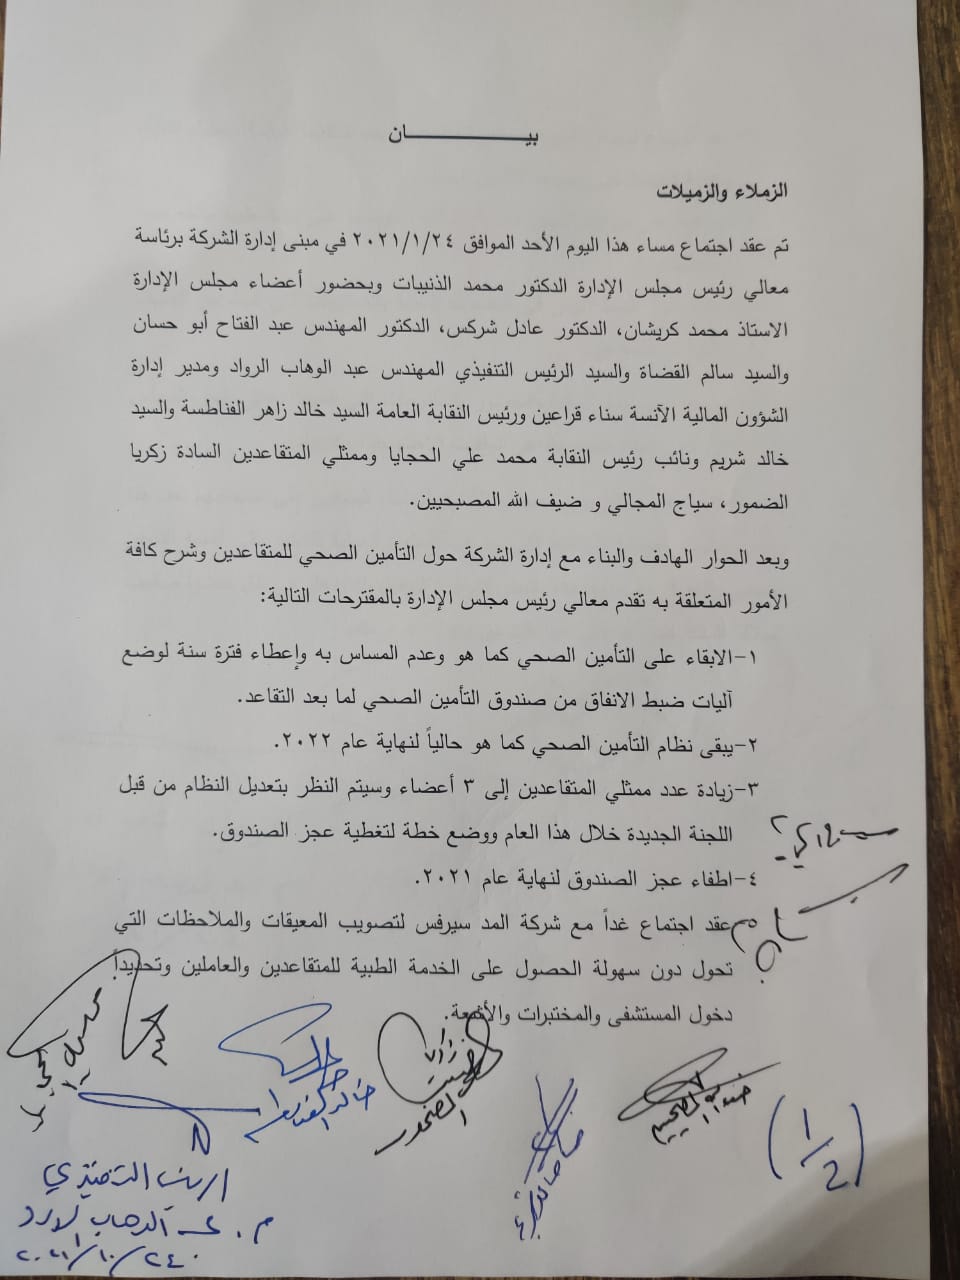 بيـــــــــــــان
الزملاء والزميلات
تم عقد اجتماع مساء هذا اليوم الأحد الموافق ٢٠٢١/١/٢٤ في مبنى إدارة الشركة برئاسة
معالي رئيس مجلس الإدارة الدكتور محمد الذنيبات وبحضور أعضاء مجلس الإدارة
الاستاذ محمد كريشان، الدكتور عادل شركس، الدكتور المهندس عبد الفتاح أبو حسان
والسيد سالم القضاة والسيد الرئيس التنفيذي المهندس عبد الوهاب الرواد ومدير إدارة
الشؤون المالية الآنسة سناء قراعين ورئيس النقابة العامة السيد خالد زاهر الفناطسة والسيد
خالد شريم ونائب رئيس النقابة محمد علي الحجايا وممثلي المتقاعدين السادة زكريا
الضمور، سياج المجالي و ضيف الله المصبحيين.
وبعد الحوار الهادف والبناء مع إدارة الشركة حول التأمين الصحي للمتقاعدين وشرح كافة
الأمور المتعلقة به تقدم معالي رئيس مجلس الإدارة بالمقترحات التالية:
١-الابقاء على التأمين الصحي كما هو وعدم المساس به وإعطاء فترة سنة لوضع
آليات ضبط الانفاق من صندوق التأمين الصحي لما بعد التقاعد.
٢-يبقى نظام التأمين الصحي كما هو حالياً لنهاية عام ٢٠٢٢.
٣-زيادة عدد ممثلي المتقاعدين إلى ٣ أعضاء وسيتم النظر بتعديل النظام من قبل
اللجنة الجديدة خلال هذا العام ووضع خطة لتغطية عجز الصندوق.
٤-اطفاء عجز الصندوق لنهاية عام ٢٠٢١.
عقد اجتماع غداً مع شركة المد سيرفس لتصويب المعيقات والملاحظات التي
تحول دون سهولة الحصول على الخدمة الطبية للمتقاعدين والعاملين وتحديداً
دخول المستشفى والمختبرات والأشعة.
خالد الفناطسة
(1/2)
الرئيس التنفيذي
م. عبد الوهاب الرواد